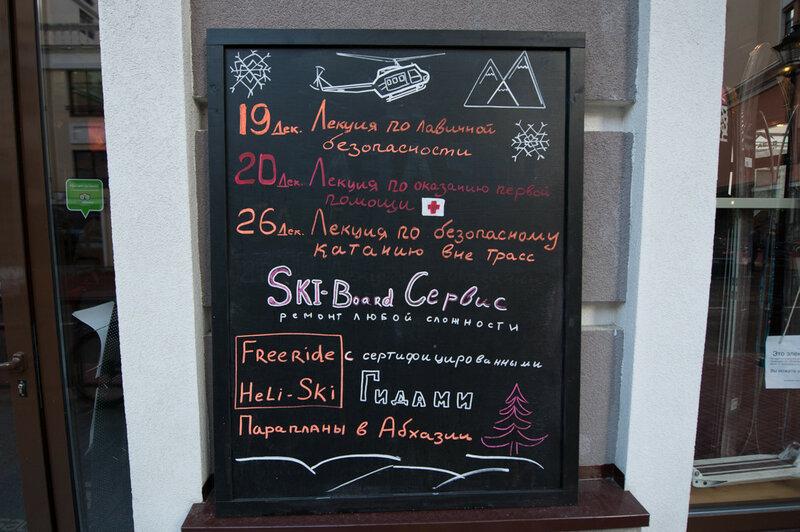 19 Дек. Лекция по лавичной
безопасности
20 Дек. Лекция по оказанию первой
помощи
26 Дек. Лекция по безопасному
катанию вне трасс
SKI-Board Сервис
ремонт любой сложности
FreeRide с сертифицированными
HeLi-Ski Гидами
Парапланы в Абхазии
Это эле